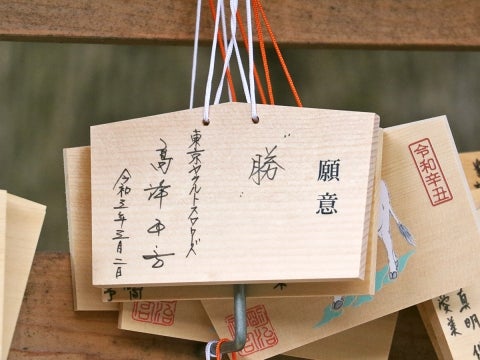 願意
勝
東京ヤクルトスワローズ
高津臣吾
令和三年三月二日
令和辛丑